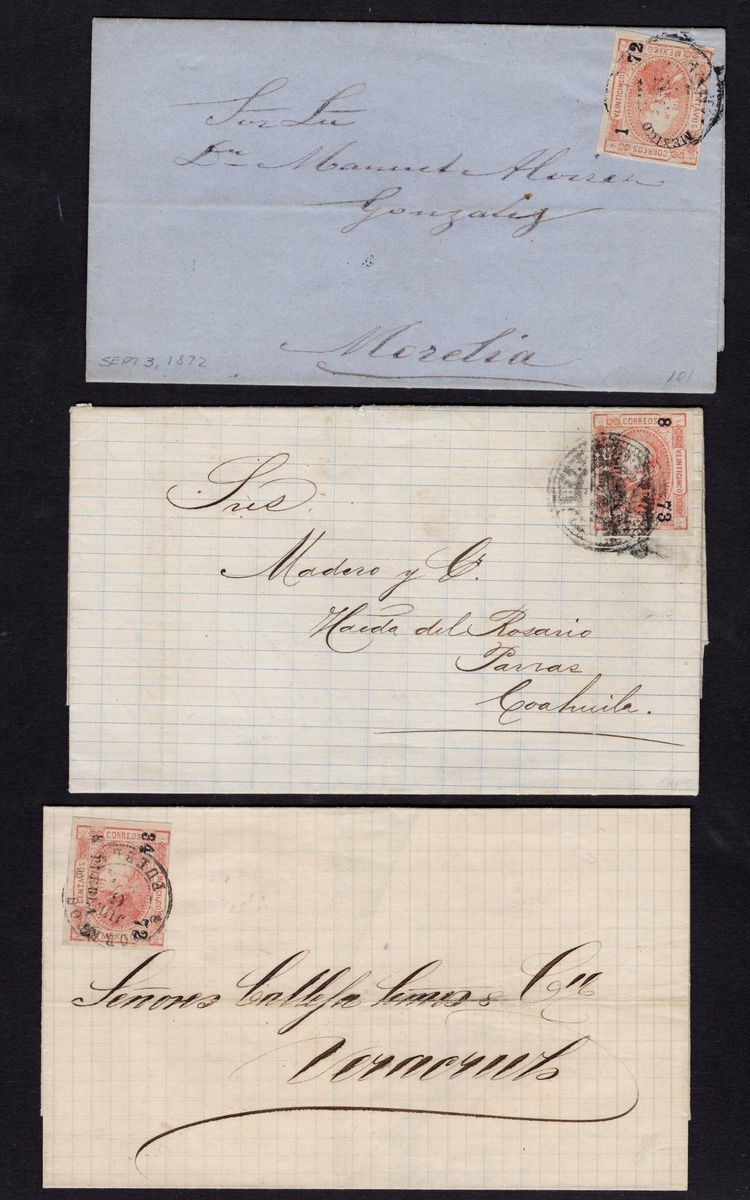 72
MEXICO
VEINTICINCO
CENTAVOS
CORREOS
1
MEXICO
Dn Manuel
Gonzalez
Morelia
SEPT 3, 1872
101
CORREOS
8
VEINTICINCO
73
Sres.
Madero y Ca.
Hacda del Rosario
Parras
Coahuila.
CORREOS
34
CENTAVOS
PUEBLA
JUL
72
Señores Calleja & Cia
Veracruz